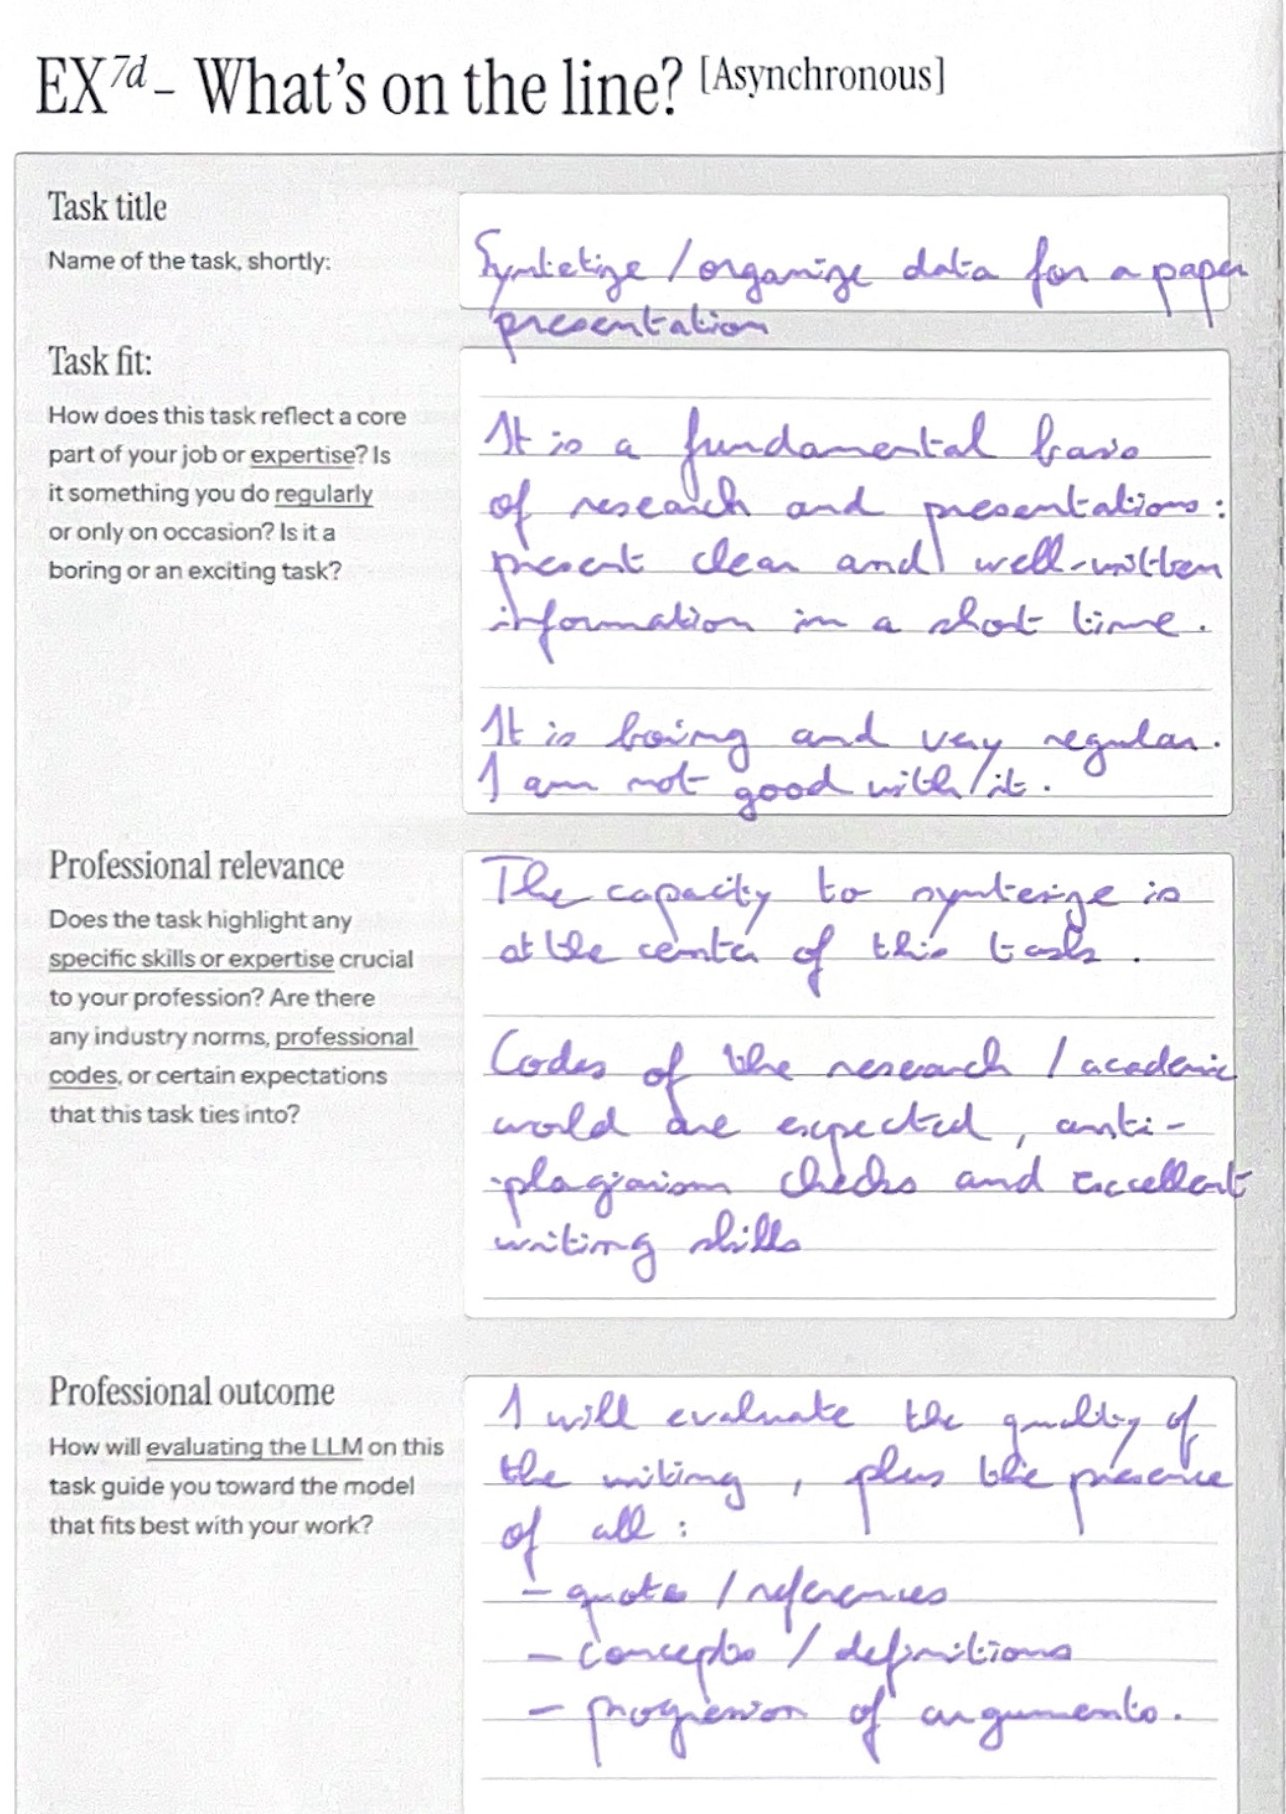 EX7d – What's on the line? [Asynchronous]
Task title
Name of the task, shortly:
Syntetize / organize data for a paper
presentation
Task fit:
How does this task reflect a core
part of your job or expertise? Is
it something you do regularly
or only on occasion? Is it a
boring or an exciting task?
It is a fundamental basis
of research and presentations:
present clear and well-written
information in a short time.
It is boring and very regular.
I am not good with it.
Professional relevance
Does the task highlight any
specific skills or expertise crucial
to your profession? Are there
any industry norms, professional
codes, or certain expectations
that this task ties into?
The capacity to syntesize is
at the center of this task.
Codes of the research / academic
world are expected, anti-
-plagiarism checks and excellent
writing skills
Professional outcome
How will evaluating the LLM on this
task guide you toward the model
that fits best with your work?
I will evaluate the quality of
the writing, plus the presence
of all:
- quotes / references
- concepts / definitions
- progression of arguments.